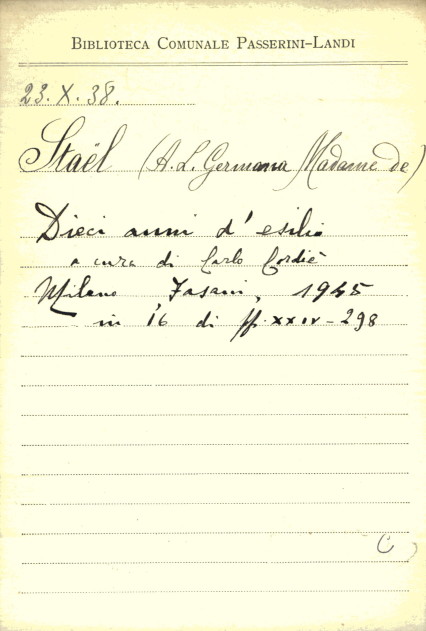 BIBLIOTECA COMUNALE PASSERINI-LANDI
23.X.38.
Staël (A.L. Germana Madame de)
Dieci anni d'esilio
a cura di Carlo Cordiè
Milano, Fasani, 1945
in 16 di pp. XXIV-298